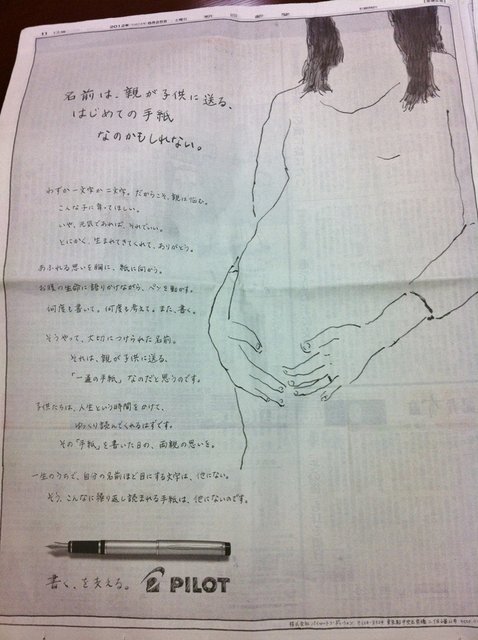 名前は、親が子供に送る、
はじめての手紙
なのかもしれない。
わずか一文字か二文字。だからこそ、親は悩む。
こんな子に育ってほしい。
いや、元気であれば、それでいい。
とにかく、生まれてきてくれて、ありがとう。
あふれる思いを胸に、紙に向かう。
お腹の生命に語りかけながら、ペンを動かす。
何度も書いて。何度も考えて。また、書く。
そうやって、大切につけられた名前。
それは、親が子供に送る、
「一通の手紙」なのだと思うのです。
子供たちは、人生という時間をかけて、
ゆっくり読んでくれるはずです。
その「手紙」を書いた日の、両親の思いを。
一生のうちで、自分の名前ほど目にする文字は、他にない。
そう、こんなに繰り返し読まれる手紙は、他にないのです。
書く、を支える。 PILOT